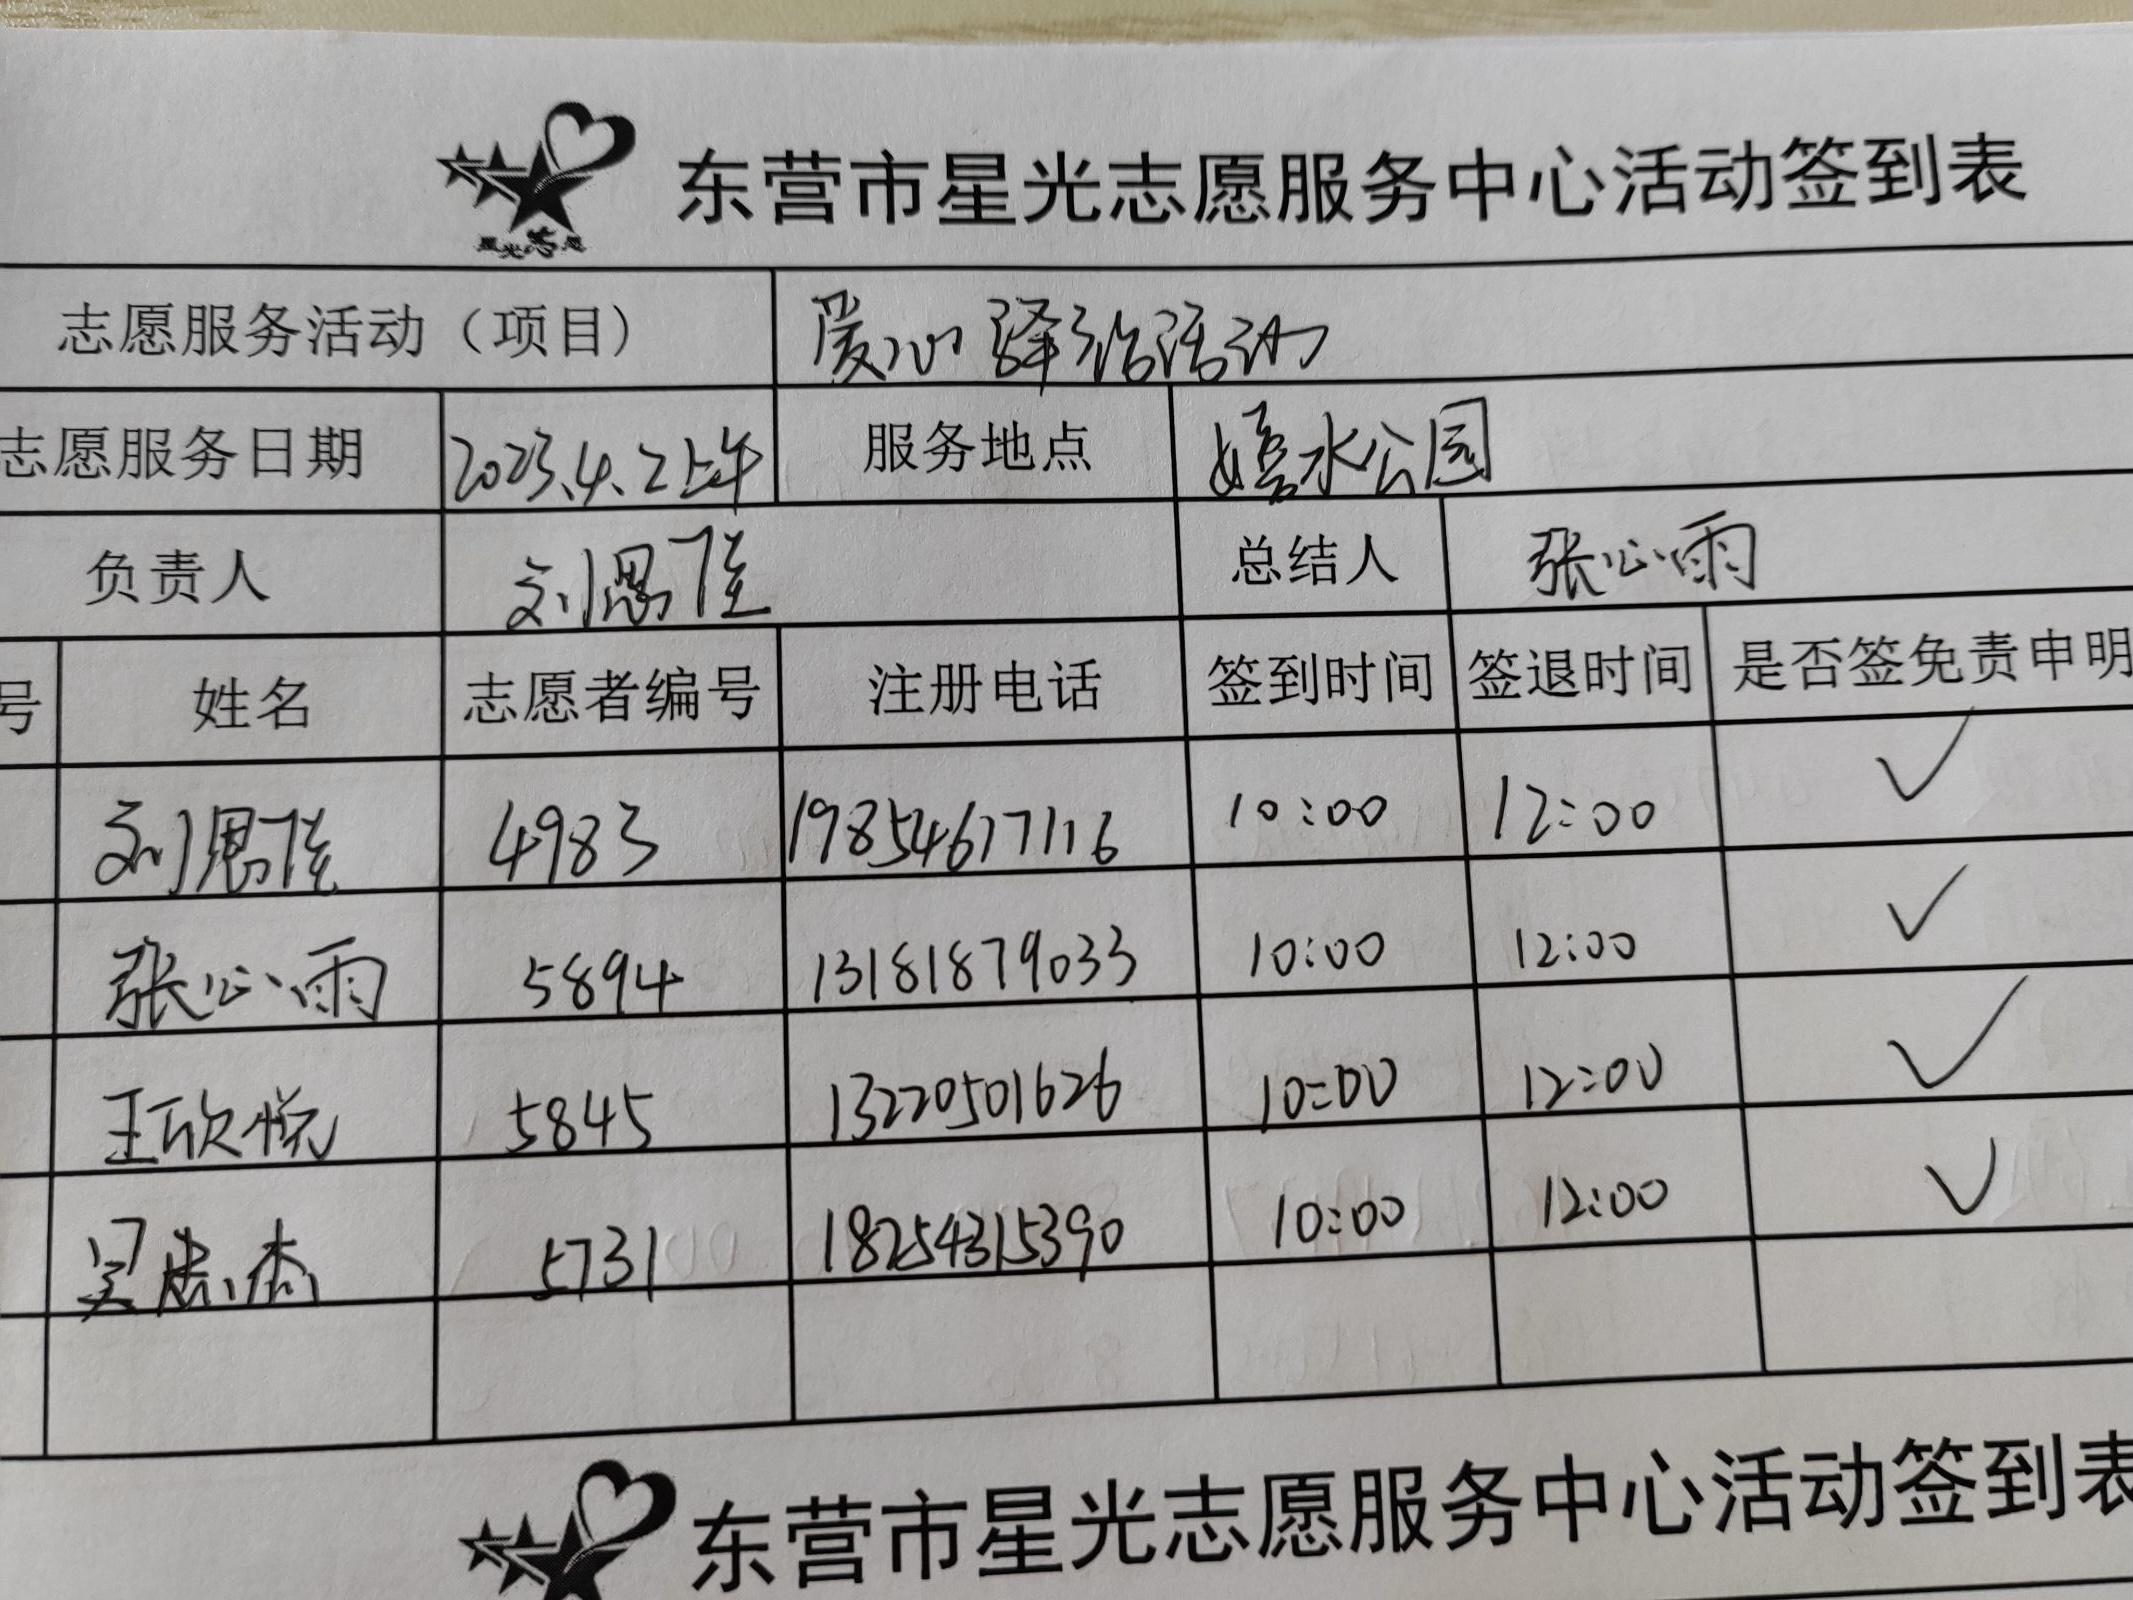 星光志愿
东营市星光志愿服务中心活动签到表
志愿服务活动（项目） 爱心驿站活动
志愿服务日期 2023.4.2上午 服务地点 嬉水公园
负责人 刘思佳 总结人 张心雨
号 姓名 志愿者编号 注册电话 签到时间 签退时间 是否签免责申明
刘思佳 4983 19854677116 10:00 12:00 ✓
张心雨 5894 13181879033 10:00 12:00 ✓
王欣悦 5845 13220501626 10:00 12:00 ✓
吴志杰 5731 18254315390 10:00 12:00 ✓
东营市星光志愿服务中心活动签到表